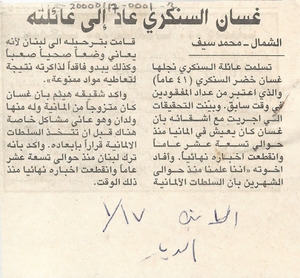 غسان السنكري عاد إلى عائلته
الشمال ـ محمد سيف
تسلمت عائلة السنكري نجلها
غسان خضر السنكري (٤١ عاماً)
والذي اعتبر من عداد المفقودين
في وقت سابق. وبينت التحقيقات
التي اجريت مع اشقائه بان
غسان كان يعيش في المانيا منذ
حوالى تسعة عشر عاماً
وانقطعت اخباره نهائياً. وأفاد
اخوته «اننا علمنا منذ حوالى
الشهرين بان السلطات الالمانية
قامت بترحيله الى لبنان لأنه
يعاني وضعاً صحياً صعباً
وكذلك يبدو فاقداً لذاكرته نتيجة
لتعاطيه مواد ممنوعة».
واكد شقيقه هيثم بان غسان
كان متزوجاً من المانية وله منها
ولدان وهو عانى مشاكل خاصة
هناك قبل ان تتخذ السلطات
الالمانية قراراً بإبعاده. واكد بأنه
ترك لبنان منذ حوالى تسعة عشر
عاماً وانقطعت اخباره نهائياً منذ
ذلك الوقت.
١٧/
الديار